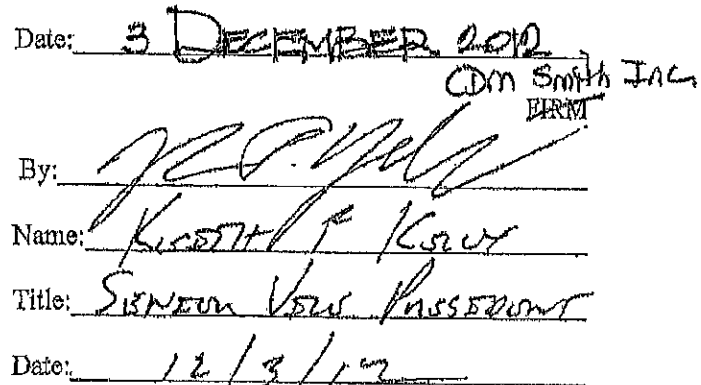 Date: 3 DECEMBER 2012
CDM Smith Inc.
FIRM
By:
Name:
Title: SENIOR VICE PRESIDENT
Date: 12/3/12